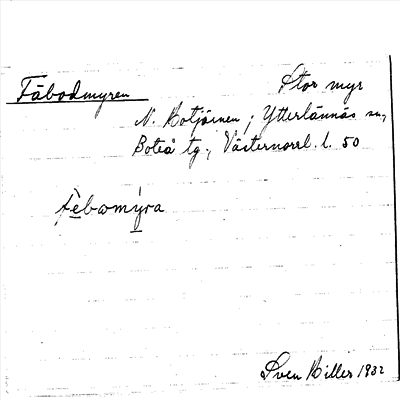 Fäbodmyren Stor myr
N. Kotjärnen; Ytterlännäs sn,
Boteå tg., Västernorrl. l. 50
fèbωmýra
Sven Hiller 1932